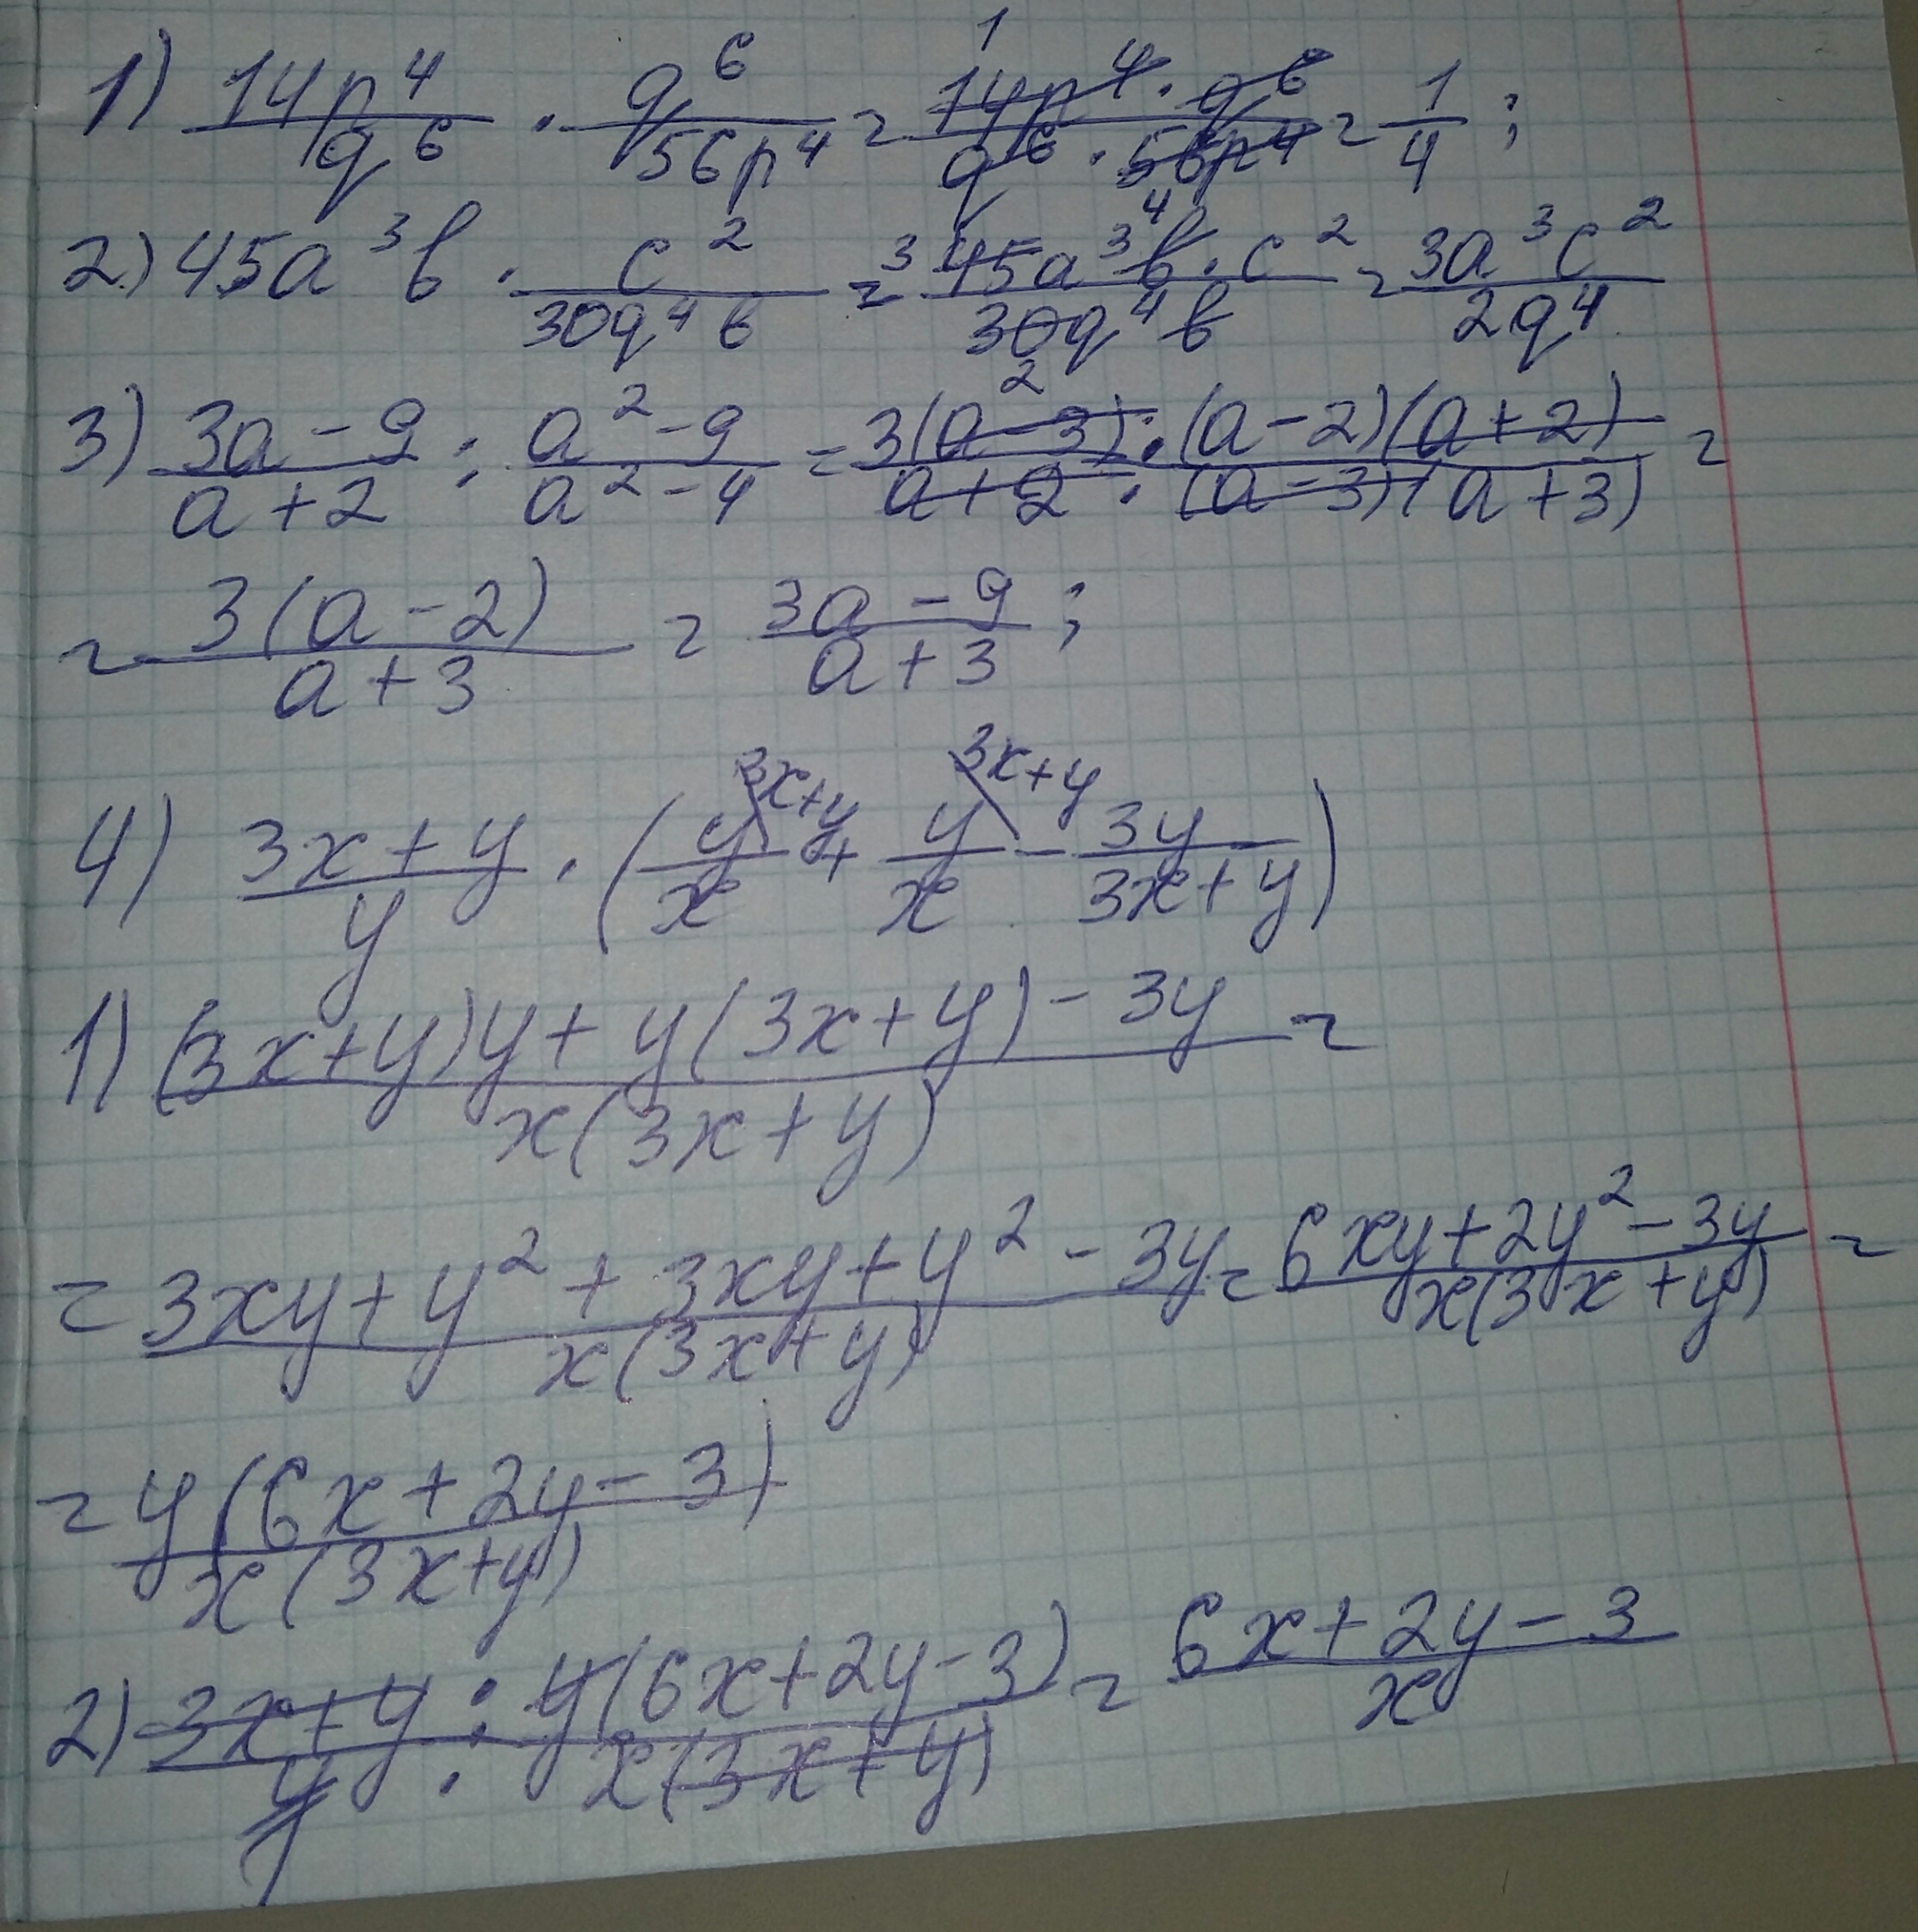 1) 14p⁴/q⁶ · q⁶/56p⁴ = 14p⁴ · q⁶/q⁶ · 56p⁴ = 1/4 ;
2) 45a³b · c²/30q⁴b = 45a³b · c²/30q⁴b = 3a³c²/2q⁴
3) 3a-9/a+2 : a²-9/a²-4 = 3(a-3) · (a-2)(a+2)/a+2 · (a-3)(a+3) =
= 3(a-2)/a+3 = 3a-9/a+3 ;
4) 3x+y/y · (y/x + y/x - 3y/3x+y)
1) (3x+y)y + y(3x+y) - 3y/x(3x+y) =
= 3xy+y²+3xy+y²-3y/x(3x+y) = 6xy+2y²-3y/x(3x+y) =
= y(6x+2y-3)/x(3x+y)
2) 3x+y/y · y(6x+2y-3)/x(3x+y) = 6x+2y-3/x